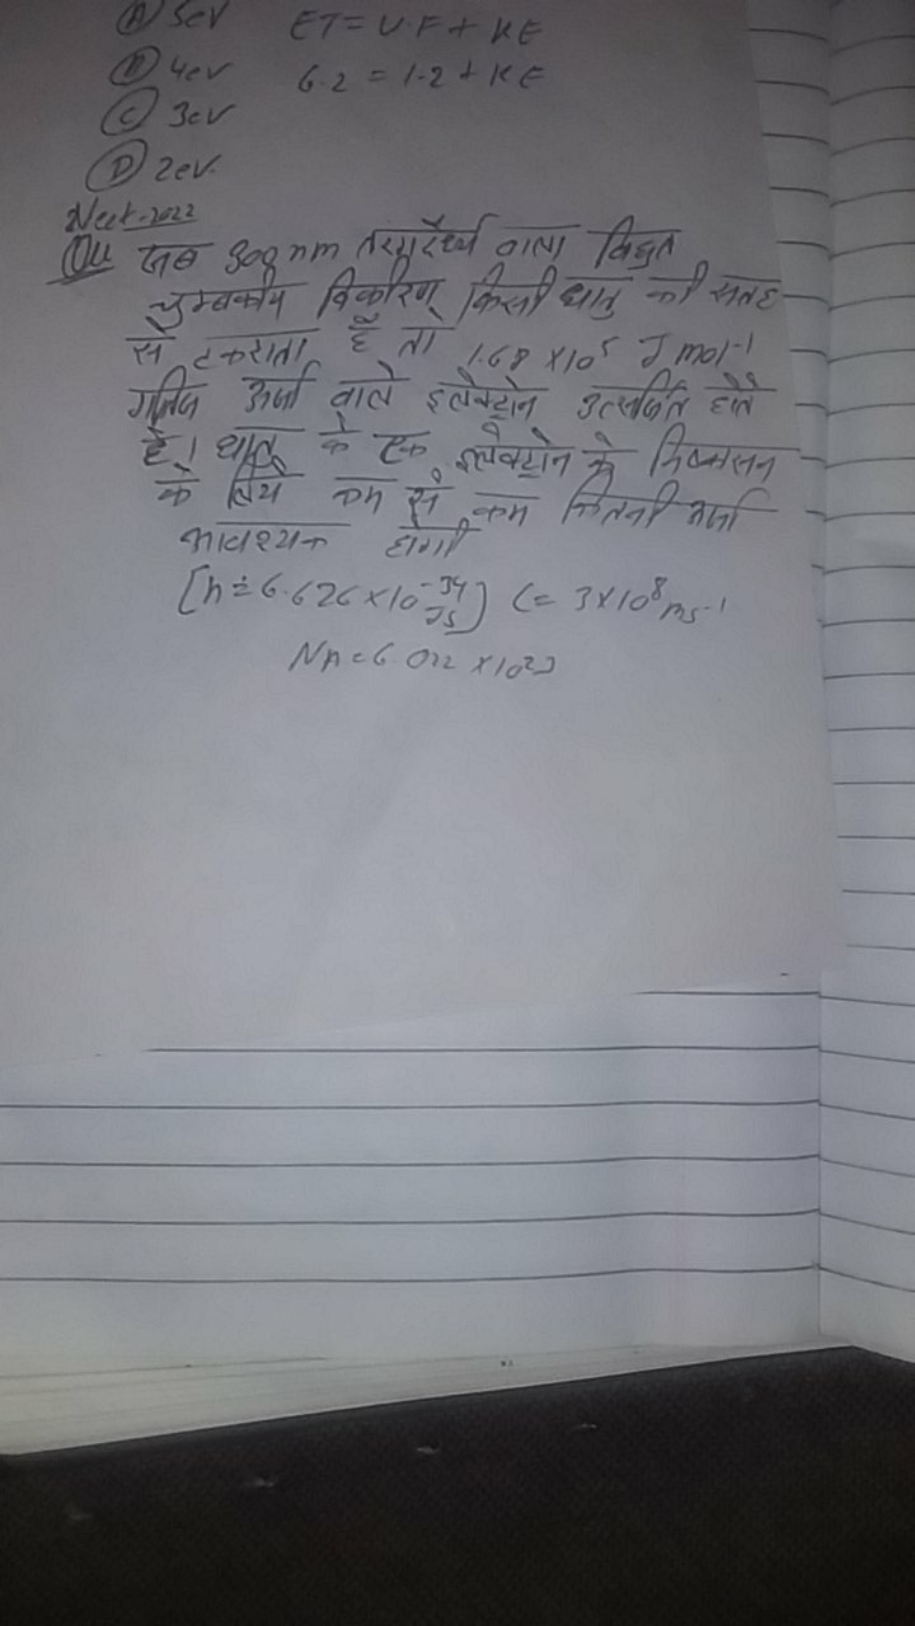 (A) 5eV ET = W.F + KE
(B) 4eV 6.2 = 1.2 + KE
(C) 3eV
(D) 2eV.
Neet-2022
Qu जब 300 nm तरंगदैर्ध्य वाला विद्युत
चुम्बकीय विकीरण किसी धातु की सतह
से टकराता है तो 1.68 × 10⁵ J mol⁻¹
गतिज ऊर्जा वाले इलेक्ट्रोन उत्सर्जित होते
है। धातु के एक इलेक्ट्रोन के निष्कासन
के लिये कम से कम कितनी ऊर्जा
आवश्यक होगी
[h = 6.626 × 10⁻³⁴ Js] C = 3 × 10⁸ ms⁻¹
NA = 6.022 × 10²³